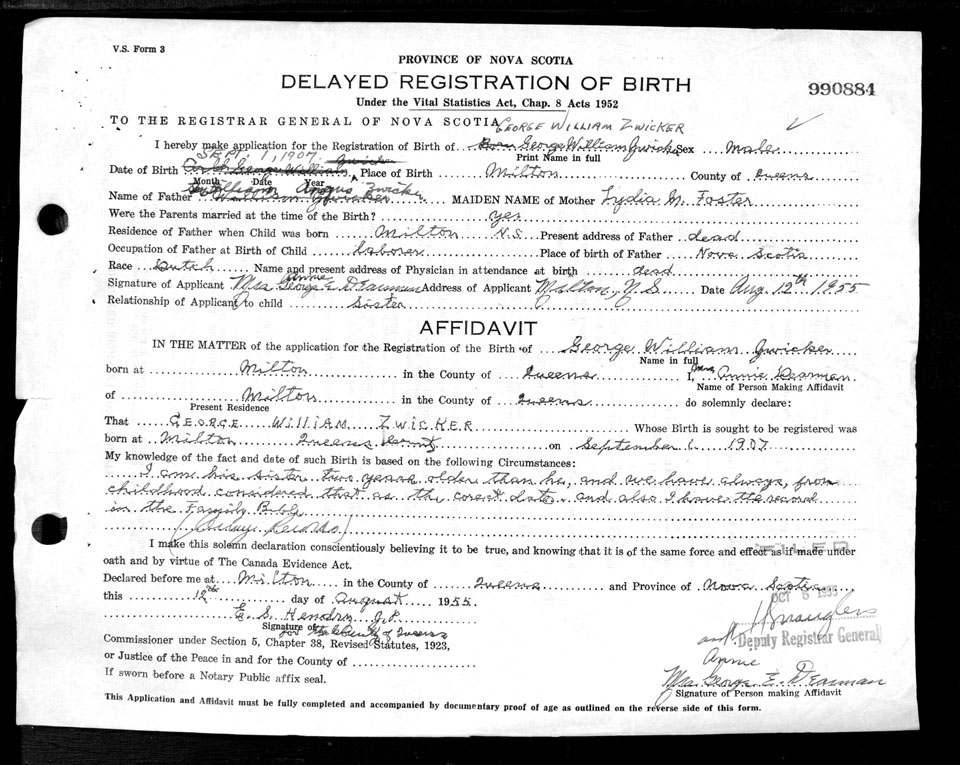 V.S. Form 3
PROVINCE OF NOVA SCOTIA
DELAYED REGISTRATION OF BIRTH
990884
Under the Vital Statistics Act, Chap. 8 Acts 1952
GEORGE WILLIAM ZWICKER
TO THE REGISTRAR GENERAL OF NOVA SCOTIA
I hereby make application for the Registration of Birth of George William Zwicker Sex Male
Print Name in full
SEPT. 1, 1907. Zwicker
Date of Birth George William Place of Birth Milton County of Queens
Month Date Year
William Angus Zwicker
Name of Father William Zwicker MAIDEN NAME of Mother Lydia M. Foster
Were the Parents married at the time of the Birth? yes
Residence of Father when Child was born Milton N.S. Present address of Father dead
Occupation of Father at Birth of Child laborer Place of birth of Father Nova Scotia
Race Dutch Name and present address of Physician in attendance at birth dead
Annie
Signature of Applicant Mrs George E. Dearman Address of Applicant Milton, N S Date Aug. 12th 1955
Relationship of Applicant to child sister
AFFIDAVIT
IN THE MATTER of the application for the Registration of the Birth of George William Zwicker
Name in full
born at Milton in the County of Queens I, Mrs Annie Dearman
Name of Person Making Affidavit
of Milton in the County of Queens do solemnly declare:
Present Residence
That GEORGE WILLIAM ZWICKER Whose Birth is sought to be registered was
born at Milton Queens County on September 1 1907
My knowledge of the fact and date of such Birth is based on the following Circumstances:
I am his sister two years older than he, and we have always, from
childhood considered that as the corect date and also I have the record
in the Family Bible
I make this solemn declaration conscientiously believing it to be true, and knowing that it is of the same force and effect as if made under
FILED
oath and by virtue of The Canada Evidence Act.
Declared before me at Milton in the County of Queens and Province of Nova Scotia
this 12th day of August 1955.
OCT 5 1955
E. S. Hendry J.P.
Signature of
for the County of Queens
Deputy Registrar General
Commissioner under Section 5, Chapter 38, Revised Statutes, 1923,
or Justice of the Peace in and for the County of
Annie
Mrs. George E. Dearman
If sworn before a Notary Public affix seal.
Signature of Person making Affidavit
This Application and Affidavit must be fully completed and accompanied by documentary proof of age as outlined on the reverse side of this form.